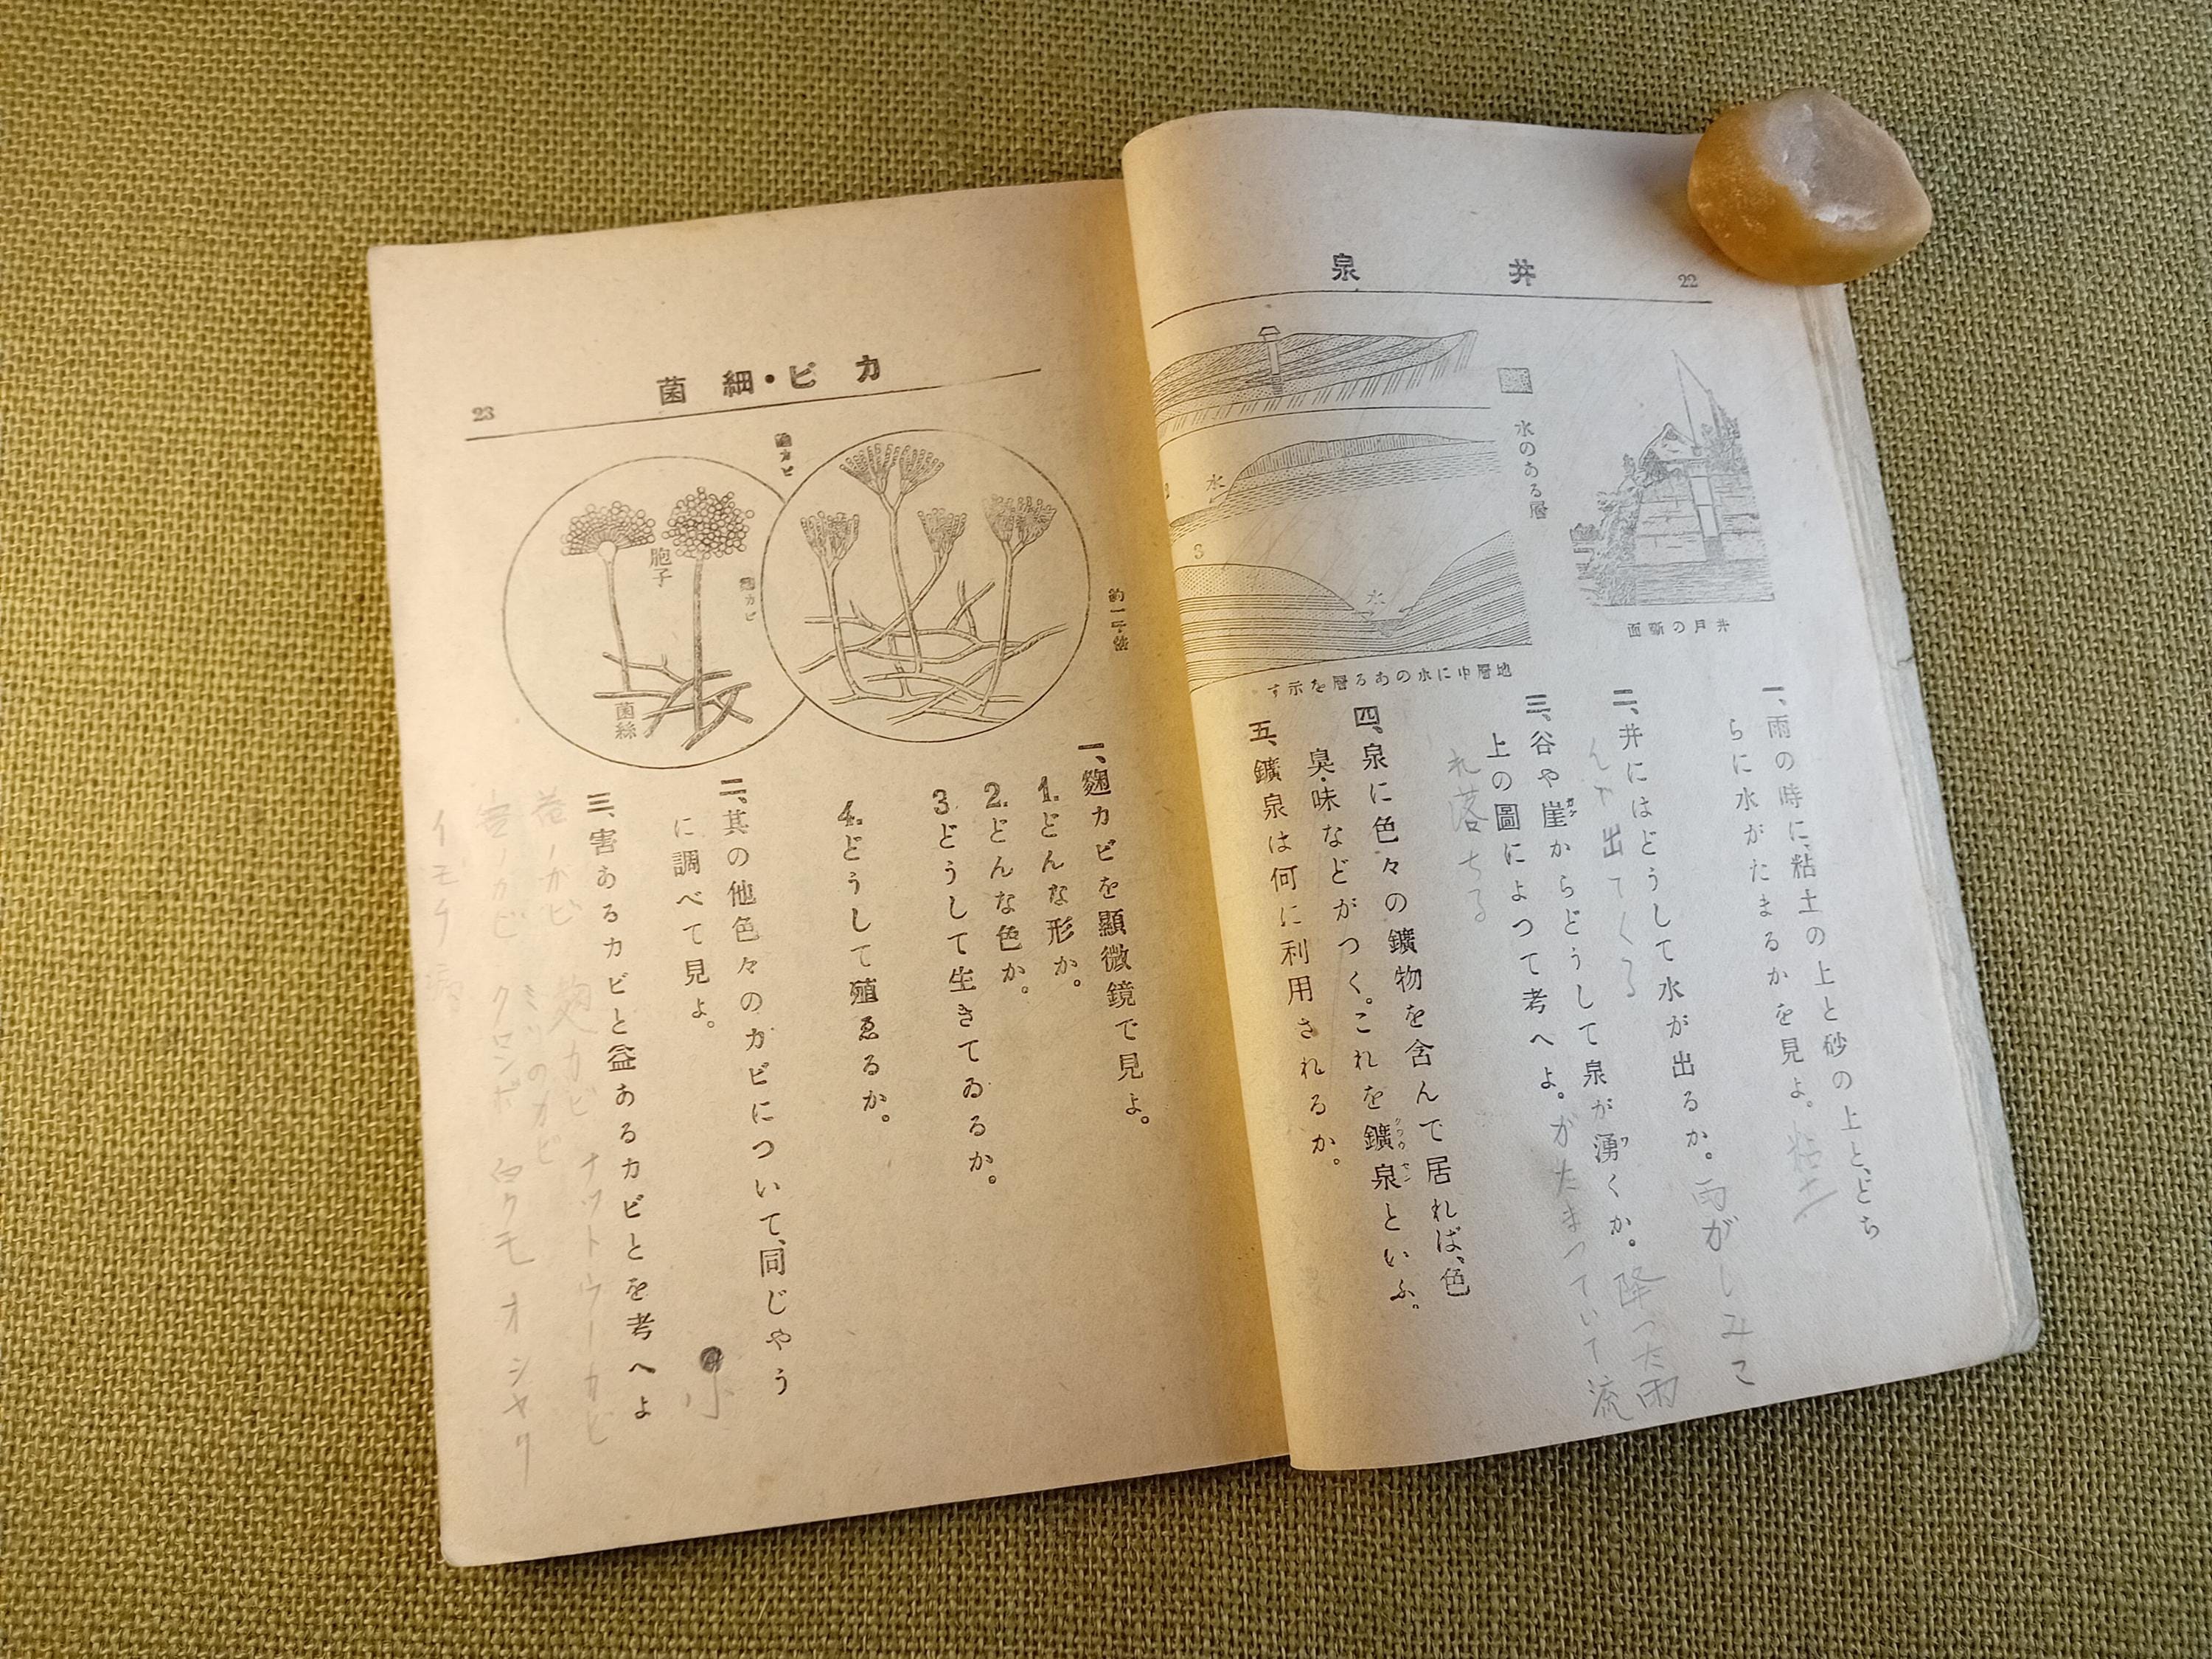 22
井 泉
井戸の断面
水のある層
水
3
水
地層中に水のある層を示す
一、雨の時に、粘土の上と砂の上と、どち
らに水がたまるかを見よ。粘土
二、井にはどうして水が出るか。雨がしみこ
んで出てくる
三、谷や崖からどうして泉が湧くか。降った雨
ガケ
ワ
上の圖によつて考へよ。がたまっていて流
れ落ちる
四、泉に色々の鑛物を含んで居れば、色・
臭・味などがつく。これを鑛泉といふ。
クワウセン
五、鑛泉は何に利用されるか。
カビ・細菌
23
カビ
カビ
胞子
菌絲
一、麹カビを顯微鏡で見よ。
1.どんな形か。
2.どんな色か。
3どうして生きてゐるか。
4.どうして殖ゑるか。
二、其の他色々のカビについて、同じやう
に調べて見よ。
三、害あるカビと益あるカビとを考へよ
麹カビ ナットウーカビ
のカビ
カビ クロンボ 白クモ オシャク
イモチ病